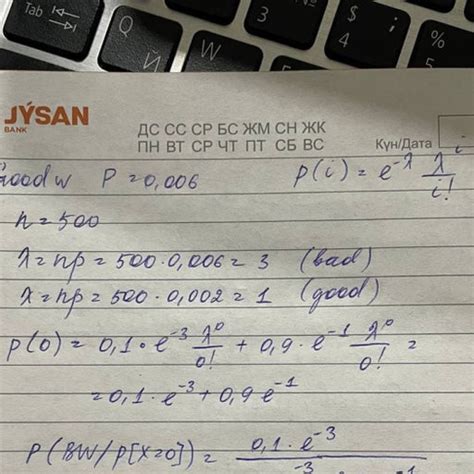 Tab
Q
Й
W
$
4
3
%
5
JÝSAN
BANK
ДС СС СР БС ЖМ СН ЖК
ПН ВТ СР ЧТ ПТ СБ ВС
Күн/Дата
Good w P = 0,006 p(i) = e^-λ λ^i/i!
n = 500
λ = np = 500 · 0,006 = 3 (bad)
λ = np = 500 · 0,002 = 1 (good)
p(0) = 0,1 · e^-3 λ^0/0! + 0,9 · e^-1 λ^0/0! =
= 0,1 · e^-3 + 0,9 e^-1
P(BW/p[X=0]) = 0,1 · e^-3